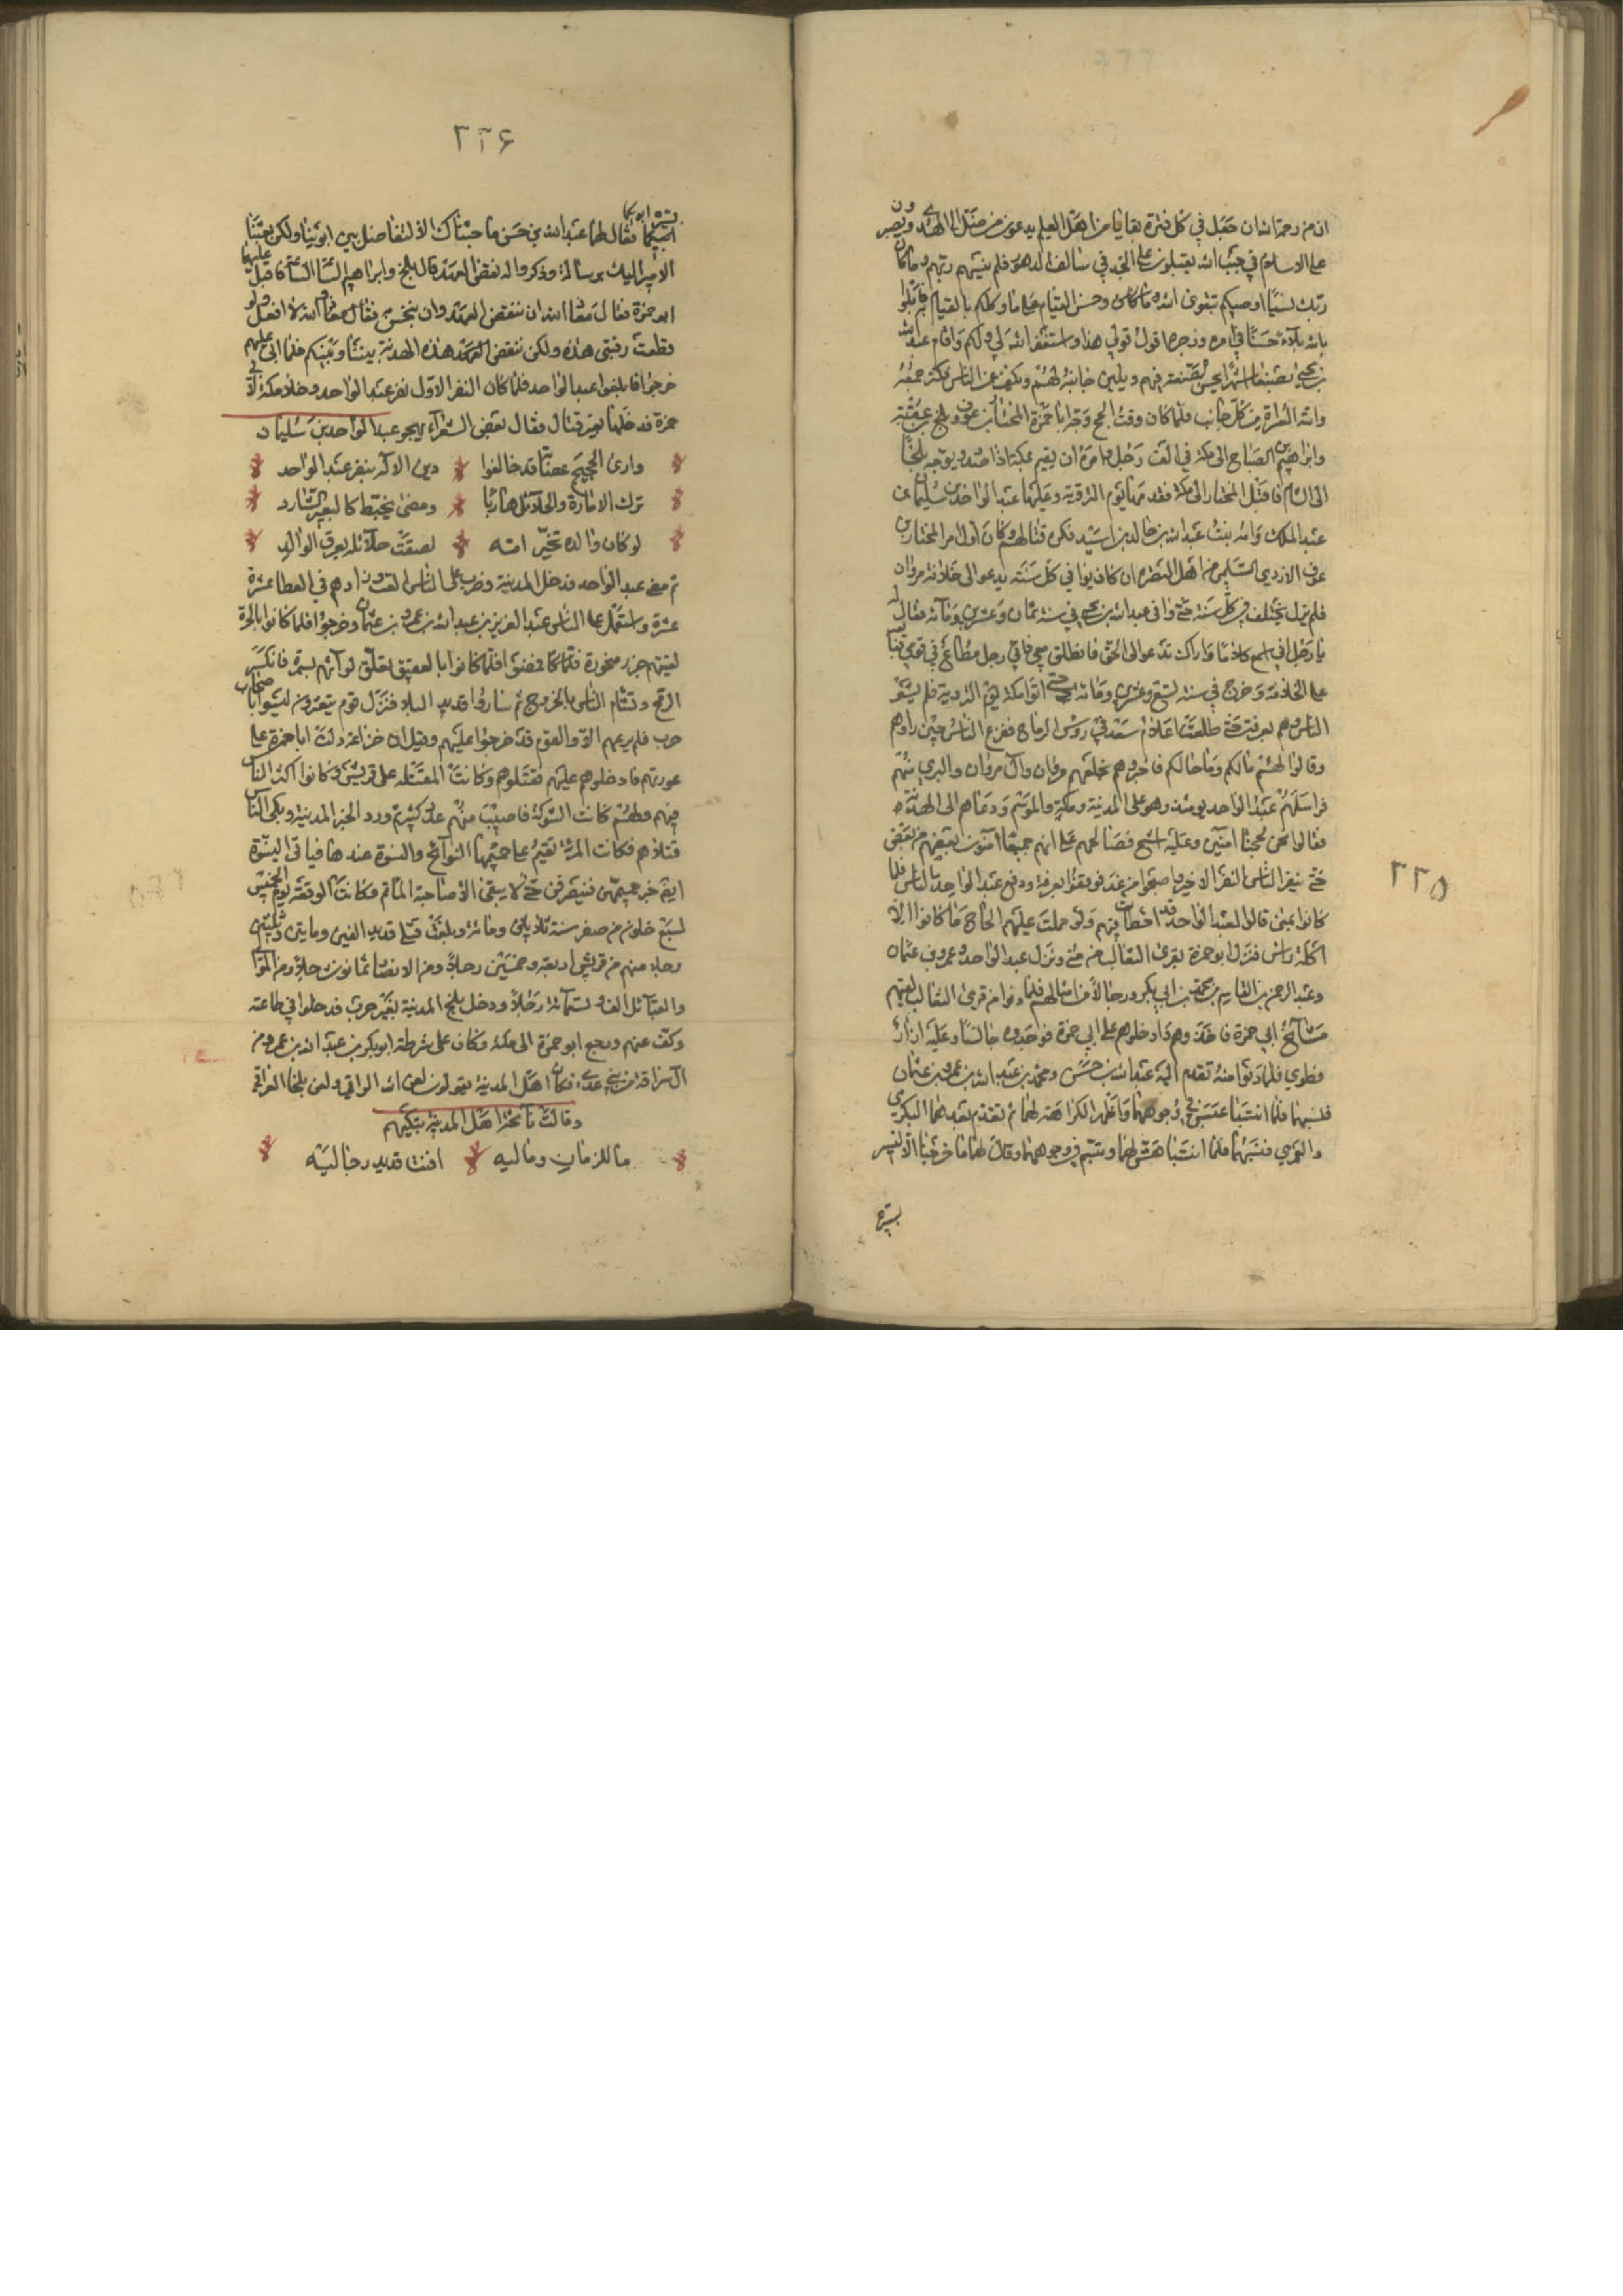 ٢٢٥
ان من رحمة الله ان جعل في كل فترة بقايا من اهل العلم يدعون من ضل الى الهدى ويصبرون
على الاسلام في جنب الله يقتلون على الحق في سالف الدهور فلم ينسهم ربهم وما كان
ربك نسيًا اوصيكم بتقوى الله وحسن القيام على ما وكلكم بالقيام فابلوا
بالله بلاء حسنًا في امره وزجره اقول قولي هذا واستغفر الله لي ولكم واقام عبد الله
بن يحيى بصنعا اشهرا يحسن فيهم ويلين جانبه لهم ويكف عن الناس فكثر جمعه
واتته الشراة من كل جانب فلما كان وقت الحج وجه ابا حمزة المختار بن عوف وبلج بن عقبة
وابراهيم بن الصباح الى مكة في الف رجل وامره ان يقيم بمكة اذا صدر ويوجه بلجًا
الى الشام فاقبل المختار الى مكة فقدمها يوم التروية وعليها عبد الواحد بن سليمان بن
عبد الملك وامه بنت عبد الله بن خالد بن اسيد فكره قتالهم وكان اول امر المختار بن
عوف الازدي السليمي من اهل البصرة ان كان يوافي كل سنة يدعو الى خلاف مروان
فلم يزل يختلف في كل سنة حتى وافى عبد الله بن يحيى في سنة ثمان وعشرين ومائة فقال له
يا رجل اني اسمع كلامًا واراك تدعو الى الحق فانطلق معي فاني رجل مطاع في قومي
على الخلافة وخرج في سنة تسع وعشرين ومائة حتى اتوا مكة يوم التروية فلم يشعر
الناس وهم بعرفة حتى طلعت اعلام في رؤس الرماح ففزع الناس حين راوهم
وقالوا لهم ما لكم وما حالكم فاخبروهم بخلعهم مروان وآل مروان والتبري منهم
فراسلهم عبد الواحد يومئذ وهو على المدينة ومكة والموسم ودعاهم الى الهدنة
فقالوا نحن بحجنا وعليه اشح فصالحهم على انهم جميعًا آمنون بعضهم من بعض
حتى ينفر الناس النفر الاخير واصبحوا من غد فوقفوا بعرفة ودفع عبد الواحد بالناس فلما
كانوا بمنى قالوا لعبد الواحد قد اخطات فيهم ولو حملت عليهم الحاج ما كانوا الا
اكلة راس فنزل ابو حمزة بقرى الثعالب من منى ونزل عبد الواحد وعمرو بن عثمان
وعبد الرحمن بن القاسم بن محمد بن ابي بكر ورجالا من امثالهم فلما دنوا من قرى الثعالب لقيتهم
مسالح ابي حمزة فاخذوهم وادخلوهم على ابي حمزة فوجدوه جالسًا وعليه ازار
قطري فلما دنوا منه تقدم اليه عبد الله بن حسن ومحمد بن عبد الله بن عمرو بن عثمان
فنسبهما فلما انتسبا عبس في وجوههما واظهر الكراهة لهما ثم تقدم بعدهما البكري
والعمري فنسبهما فلما انتسبا هش لهما وتبسم في وجوههما وقال لهما ما خرجنا الا لنسير
بسيرة
٢٢٦
بسيرة ابويكما
فقال لهما عبد الله بن حسن ما جئناك الا لتفاضل بين ابوينا ولكن بعثنا
الامير اليك برسالة وذكروا له نقض العهد قال بلج وابراهيم الساعة الساعة فاقبل عليهما
ابو حمزة فقال معاذ الله ان ننقض العهد وان نخيس فقال معاذ الله لا افعل ولو
قطعت رقبتي هذه ولكن ننقض العهد هذه الهدنة بيننا وبينكم فلما ابى عليهم
خرجوا فابلغوا عبد الواحد فلما كان النفر الاول نفر عبد الواحد وخلا مكة لابي
حمزة فدخلها بغير قتال فقال بعض الشعراء يهجو عبد الواحد بن سليمان
وارى الحجيج عصبًا قد خالفوا دين الاله بنفر عبد الواحد
ترك الامارة والحلائل هاربًا ومضى يخبط كالبعير الشارد
لو كان والده تخير امه لصفت حلائله بعرق الوالد
ثم مضى عبد الواحد فدخل المدينة وضرب على الناس البعث وزادهم في العطا عشرة
عشرة واستعمل على الناس عبد العزيز بن عبد الله بن عمرو بن عثمان وخرجوا فلما كانوا بالحرة
لقيتهم جزر منحورة فلما كانوا بالعقيق تعلق لوائهم بسمرة فانكسر
الرمح وتشام الناس بالخروج ثم ساروا قديد البلاد فنزل قوم مغترون ليسوا باصحاب
حرب فلم يرعهم الا والقوم قد خرجوا عليهم وقيل ان خزاعة دلت ابا حمزة على
عورتهم فادخلوهم عليهم فقتلوهم وكانت المقتلة على قريش وكانوا اكثر الناس
فيهم وبهم كانت الشوكة فاصيب منهم عدد كثير ثم ورد الخبر المدينة وبكى الناس
قتلاهم فكانت المرأة تقيم على حميمها النوائح والنسوة عندها فياتي النسوة
خبر حميمهن فينصرفن حتى لا يبقى الا صاحبة الماتم وكانت الوقعة يوم الخميس
لسبع خلون من صفر سنة ثلاثين ومائة وبلغت قتلى قديد الفين ومايتين وثلثين
رجلا منهم من قريش اربعة وخمسين رجلا ومن الانصار ثمانون رجلا ومن الموالي
والقبائل الف وستمائة رجلا ودخل بلج المدينة بغير حرب فدخلوا في طاعته
وكف عنهم ورجع ابو حمزة الى مكة وكان على شرطة ابو بكر بن عبد الله بن عمرو من
آل سراقة من بني عدي فكان اهل المدينة يقولون لعن الله الواقي ولعن بلجا العراقي
وقالت نائحة اهل المدينة تبكيهم
ما للزمان وما ليه افنت قديد رجاليه